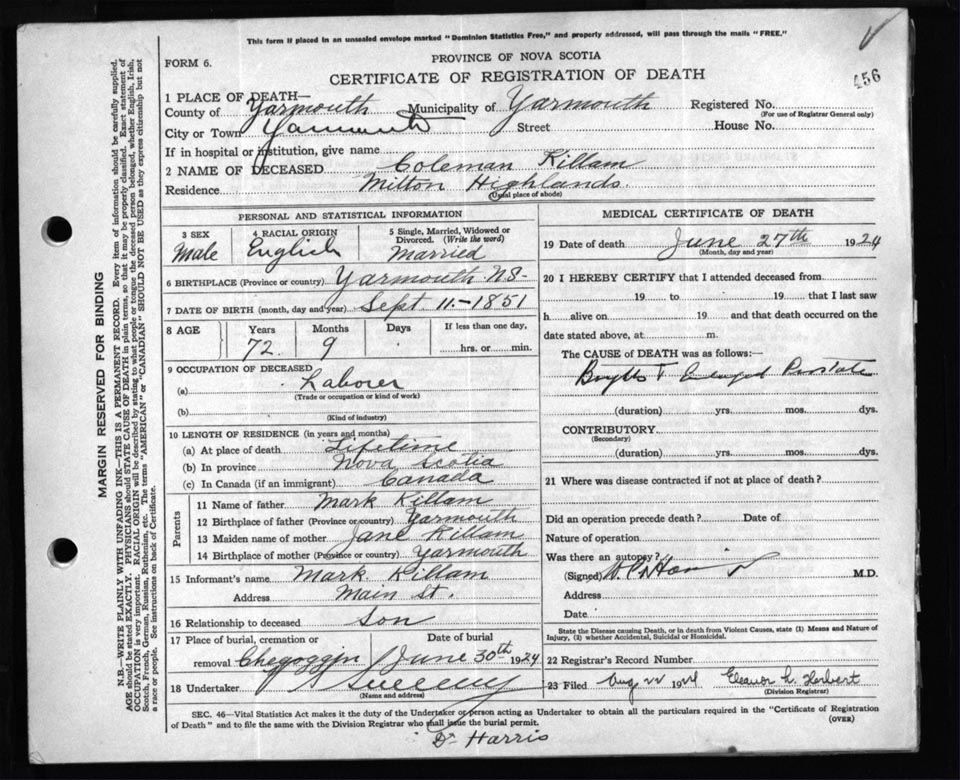 This form if placed in an unsealed envelope marked "Dominion Statistics Free," and properly addressed, will pass through the mails "FREE."
FORM 6.
PROVINCE OF NOVA SCOTIA
CERTIFICATE OF REGISTRATION OF DEATH
456
1 PLACE OF DEATH—
County of Yarmouth Municipality of Yarmouth Registered No.
(For use of Registrar General only)
City or Town Yarmouth Street House No.
If in hospital or institution, give name
2 NAME OF DECEASED Coleman Killam
Residence Milton Highlands.
(Usual place of abode)
MARGIN RESERVED FOR BINDING
N.B.—WRITE PLAINLY WITH UNFADING INK—THIS IS A PERMANENT RECORD. Every item of information should be carefully supplied.
AGE should be stated EXACTLY. PHYSICIANS should STATE CAUSE OF DEATH in plain terms, so that it may be properly classified. Exact statement of
OCCUPATION is very important. RACIAL ORIGIN will be described by stating to what people or tongue the deceased person belonged, whether English, Irish,
Scotch, French, German, Russian, Ruthenian, etc. The terms "AMERICAN" or "CANADIAN" SHOULD NOT BE USED as they express citizenship but not
a race or people. See instructions on back of Certificate.
PERSONAL AND STATISTICAL INFORMATION
3 SEX
Male
4 RACIAL ORIGIN
English
5 Single, Married, Widowed or
Divorced. (Write the word)
Married
6 BIRTHPLACE (Province or country) Yarmouth N.S-
7 DATE OF BIRTH (month, day and year) Sept. 11.-1851
8 AGE Years Months Days If less than one day,
72. 9 hrs. or min.
9 OCCUPATION OF DECEASED
(a) Laborer
(Trade or occupation or kind of work)
(b)
(Kind of industry)
10 LENGTH OF RESIDENCE (in years and months)
(a) At place of death Lifetime
(b) In province Nova Scotia
(c) In Canada (if an immigrant) Canada
Parents
11 Name of father Mark Killam
12 Birthplace of father (Province or country) Yarmouth
13 Maiden name of mother Jane Killam
14 Birthplace of mother (Province or country) Yarmouth
15 Informant's name Mark. Killam
Address Main St.
16 Relationship to deceased Son
17 Place of burial, cremation or Date of burial
removal Chegoggin June 30th 1924
18 Undertaker Sweeny
(Name and address)
MEDICAL CERTIFICATE OF DEATH
19 Date of death June 27th 1924
(Month, day and year)
20 I HEREBY CERTIFY that I attended deceased from
19 to 19 that I last saw
h alive on 19 and that death occurred on the
date stated above, at m.
The CAUSE of DEATH was as follows:—
Enlarged Prostate
(duration) yrs. mos. dys.
CONTRIBUTORY
(Secondary)
(duration) yrs. mos. dys.
21 Where was disease contracted if not at place of death?
Did an operation precede death? Date of
Nature of operation
Was there an autopsy?
(Signed) M.D.
Address
Date
State the Disease causing Death, or in death from Violent Causes, state (1) Means and Nature of
Injury, (2) whether Accidental, Suicidal or Homicidal.
22 Registrar's Record Number
23 Filed Aug 22 1924 Eleanor L. Herbert
(Division Registrar)
SEC. 46—Vital Statistics Act makes it the duty of the Undertaker or person acting as Undertaker to obtain all the particulars required in the "Certificate of Registration
of Death" and to file the same with the Division Registrar who shall issue the burial permit. (OVER)
Dr Harris